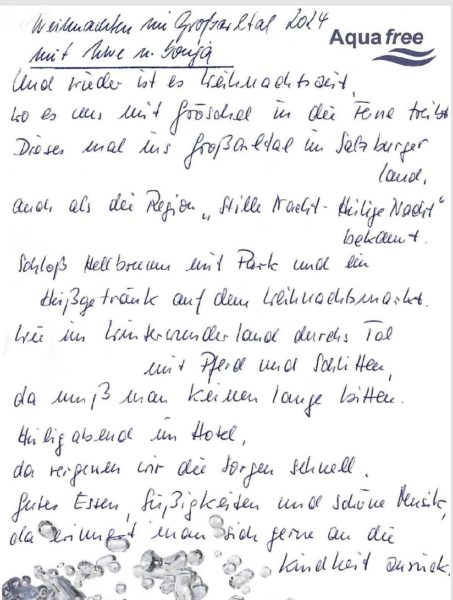 Weihnachten im Großarltal 2024
mit Uwe u. Sonja
Aqua free
Und wieder ist es Weihnachtszeit,
wo es uns mit Gröschel in die Ferne treibt
Dieses mal ins Großarltal im Salzburger
land,
auch als die Region „Stille Nacht - Heilige Nacht"
bekannt.
Schloß Hellbrunn mit Park und ein
Heißgetränk auf dem Weihnachtsmarkt.
Wie im Winterwunderland durchs Tal
mit Pferd und Schlitten,
da muß man keinen lange bitten.
Heiligabend im Hotel,
da vergessen wir die Sorgen schnell.
Gutes Essen, Süßigkeiten und schöne Musik,
da erinnert man sich gerne an die
Kindheit zurück.